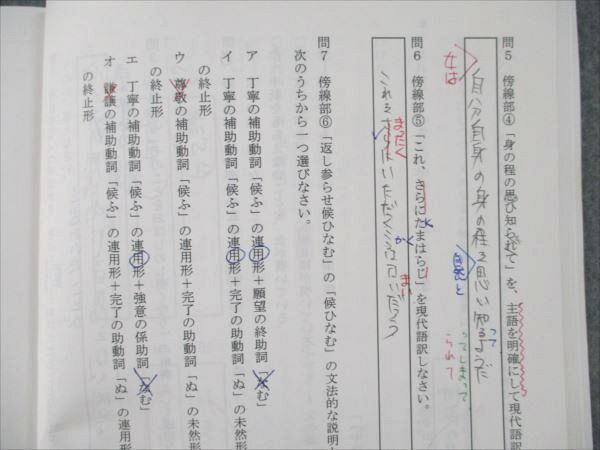 問5 傍線部④「身の程の思ひ知られて」を、主語を明確にして現代語訳
女は
自分自身の身の程を思い知るようだ
自然と
って
ってしまって
られて
問6 傍線部⑤「これ、さらにたまはらじ」を現代語訳しなさい。
まったく
まい
これを
いただく
かく
問7 傍線部⑥「返し参らせ候ひなむ」の「候ひなむ」の文法的な説明
次のうちから一つ選びなさい。
ア 丁寧の補助動詞「候ふ」の連用形+願望の終助詞「なむ」
イ 丁寧の補助動詞「候ふ」の連用形+完了の助動詞「ぬ」の未然形
の終止形
ウ 尊敬の補助動詞「候ふ」の連用形+完了の助動詞「ぬ」の未然形
の終止形
エ 丁寧の補助動詞「候ふ」の連用形+強意の係助詞「なむ」
オ 謙譲の補助動詞「候ふ」の連用形+完了の助動詞「ぬ」の連用形
の終止形